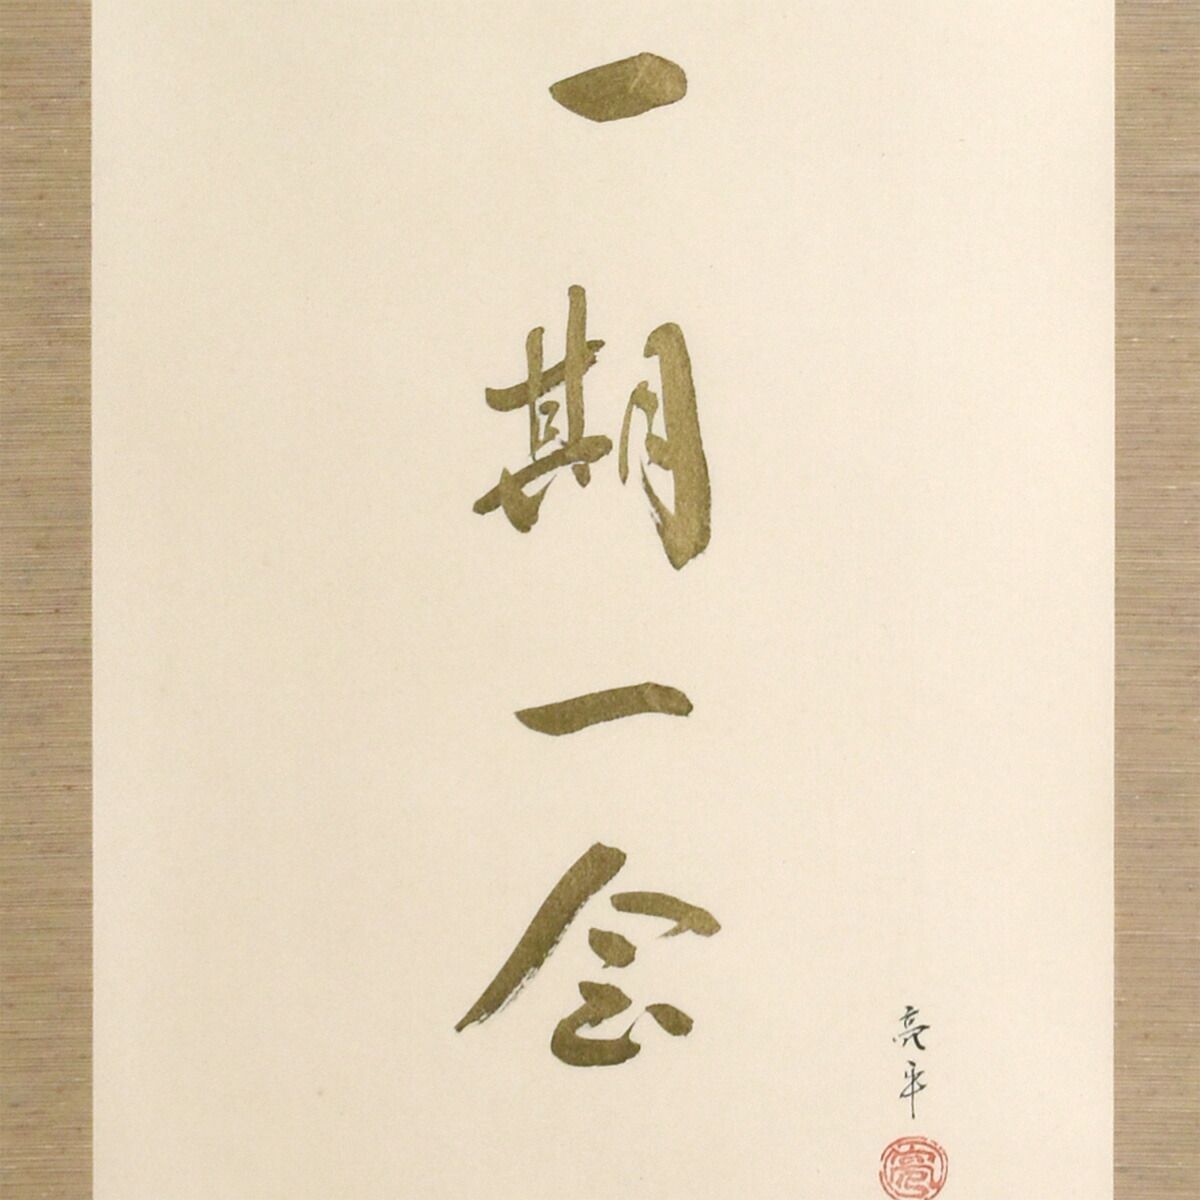 一期一会
亮平
亮